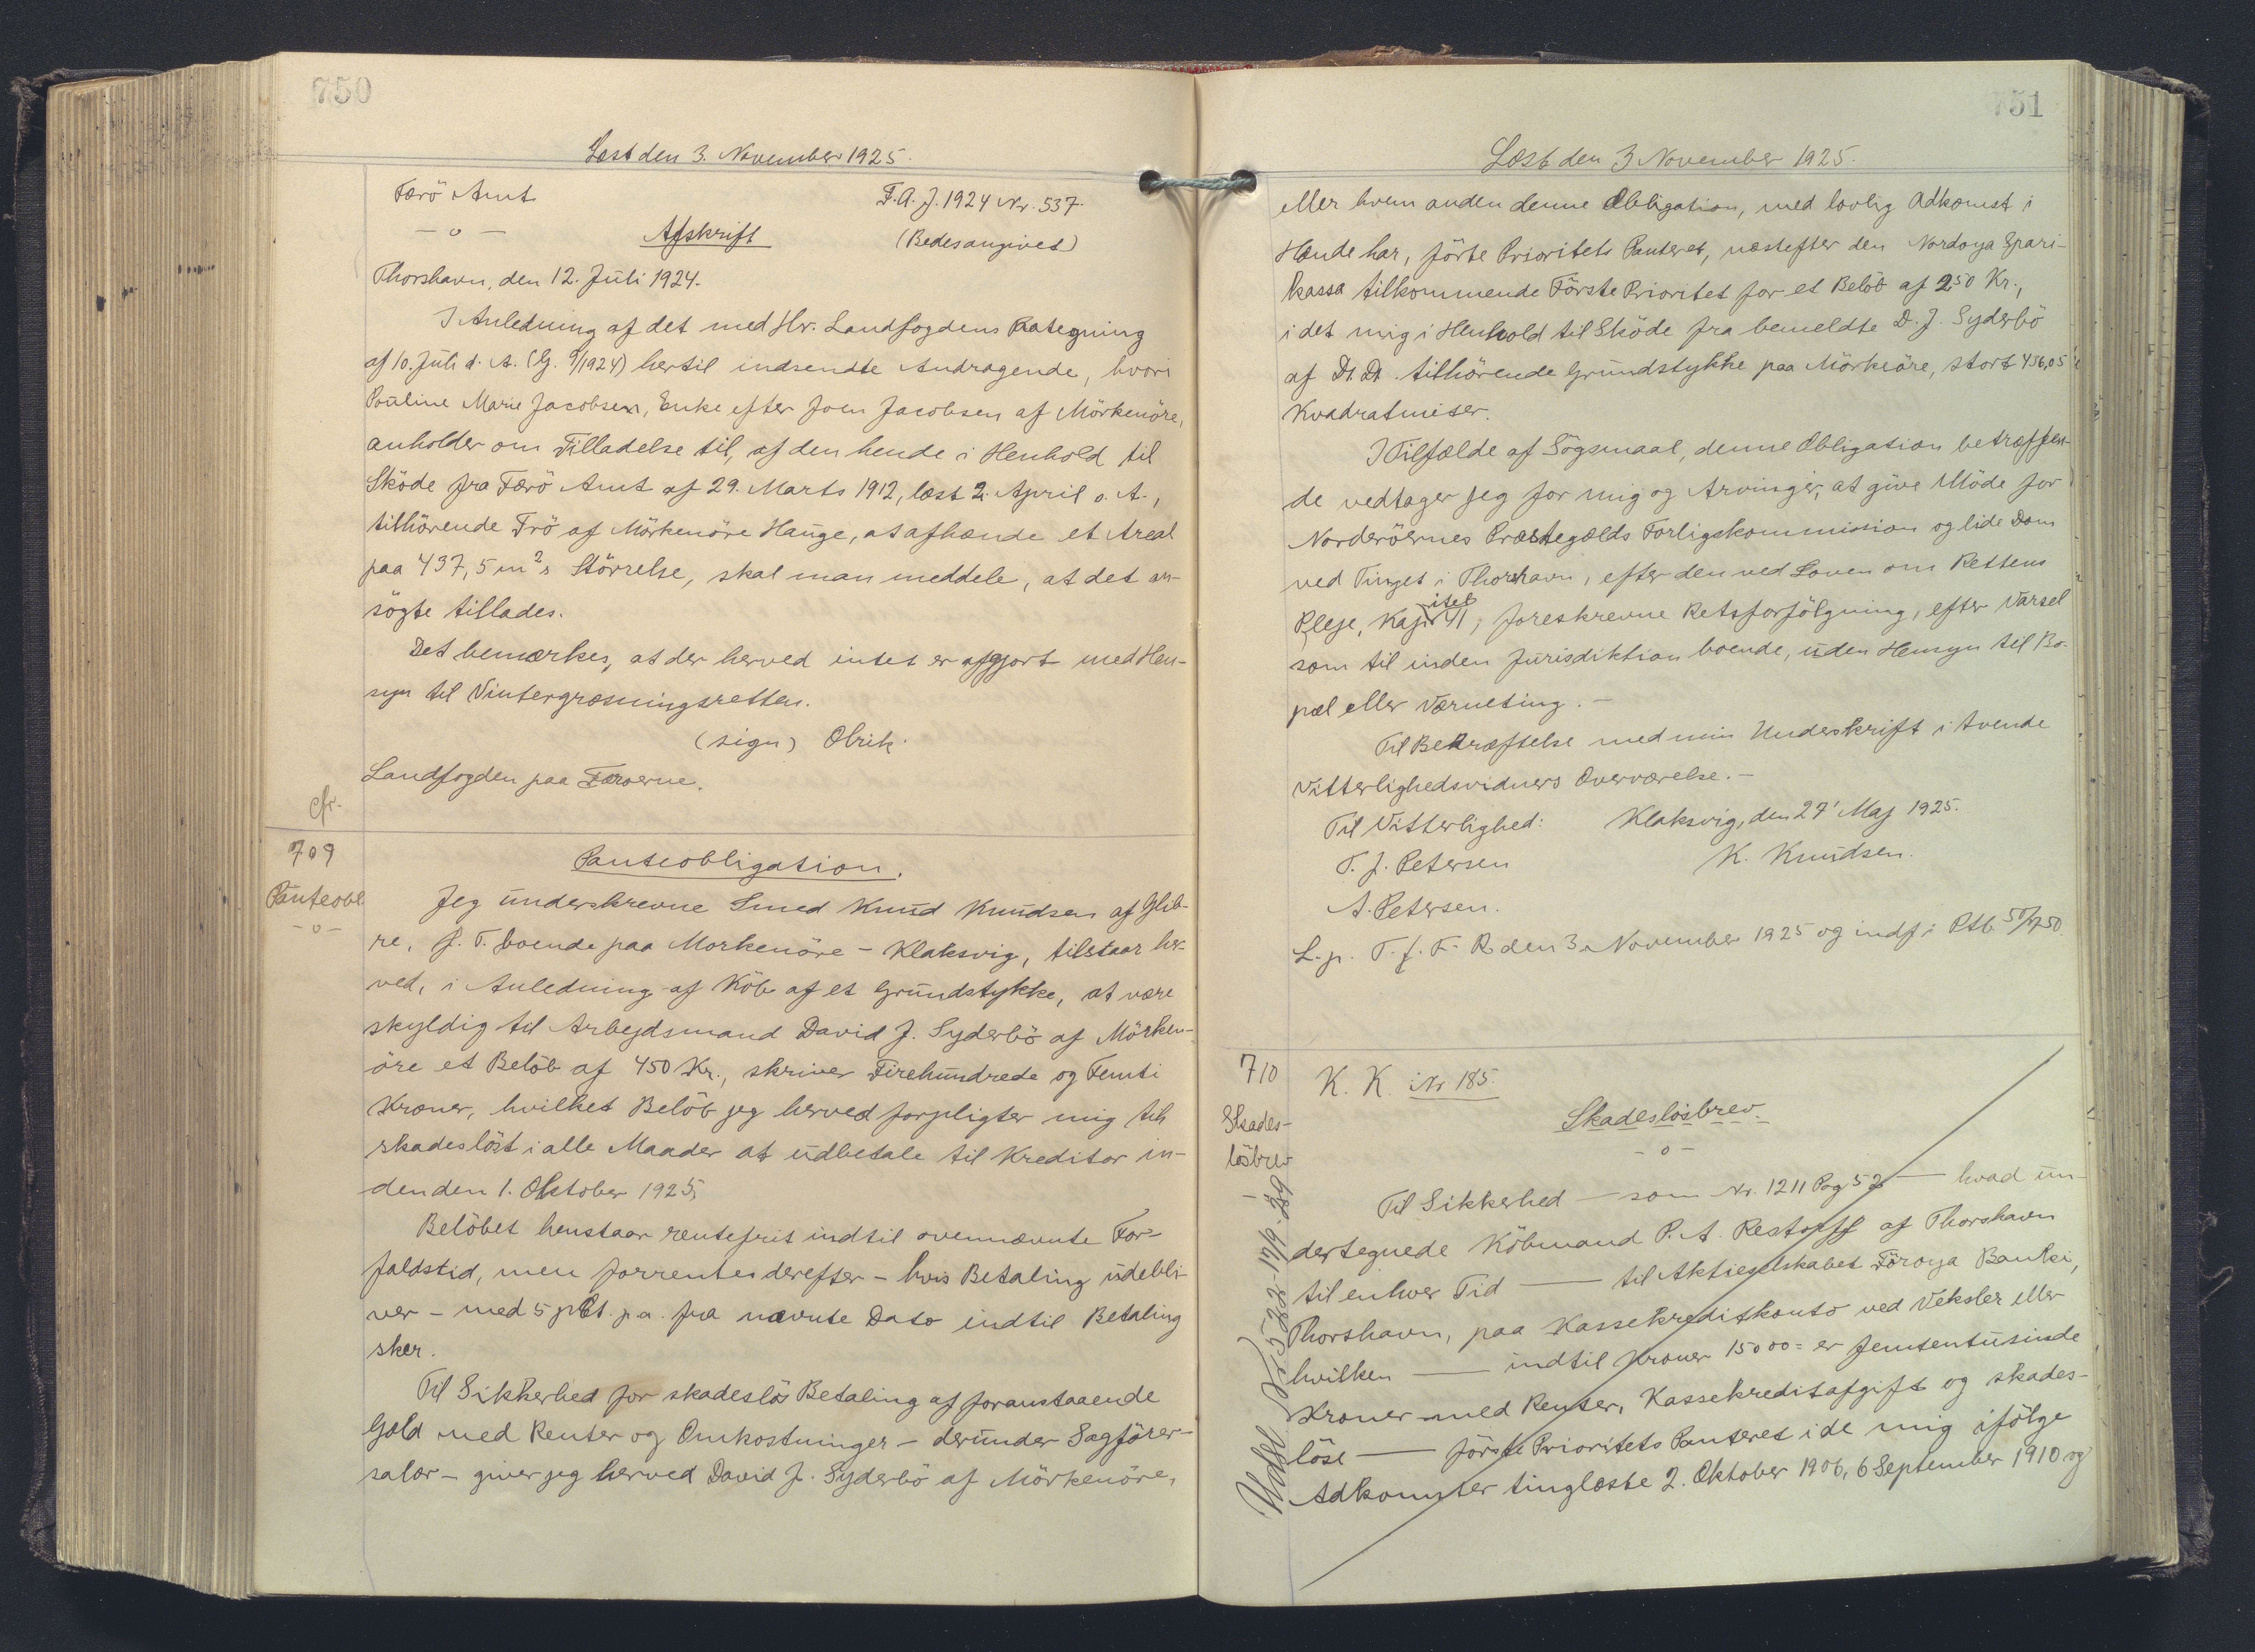 750
Læst den 3. November 1925.
Færö Amt
F. A. J. 1924 Nr. 537.
- o -
Afskrift
(Bedes angivet)
Thorshavn, den 12. Juli 1924.
I Anledning af det med Hr. Landfogdens Paategning
af 10. Juli d. A. (G. 9/1924) hertil indsendte Andragende, hvori
Pouline Marie Jacobsen, Enke efter Joen Jacobsen af Mörkenöre,
anholder om Tilladelse til, af den hende i Henhold til
Sköde fra Færö Amt af 29. Marts 1912, læst 2. April s. A.,
tilhörende Trö af Mörkenöre Hauge, at afhænde et Areal
paa 437,5 m²s Störrelse, skal man meddele, at det an-
sögte tillades.
Det bemærkes, at der herved intet er afgjort med Hen-
syn til Vintergræsningsretten.
(sign) Olrik.
Landfogden paa Færoerne.
cfr.
709
Panteobl
- o -
Panteobligation.
Jeg underskrevne Smed Knud Knudsen af Glib-
re, p. T. boende paa Morkenöre - Klaksvig, tilstaar her-
ved, i Anledning af Köb af et Grundstykke, at være
skyldig til Arbejdsmand David J. Syderbö af Mörken-
öre et Belöb af 450 Kr., skriver Firehundrede og Femti
Kroner, hvilket Belöb jeg herved forpligter mig til
skadeslöst i alle Maader at udbetale til Kreditor in-
den den 1. Oktober 1925.
Belöbet henstaar rentefrit indtil ovennævnte For-
faldstid, men forrentes derefter - hvis Betaling udebli-
ver - med 5 pCt. p.a. fra nævnte Dato indtil Betaling
sker.
Til Sikkerhed for skadeslös Betaling af foranstaaende
Gæld med Renter og Omkostninger - derunder Sagförer-
salær - giver jeg herved David J. Syderbö af Mörkenöre,
751
Læst den 3 November 1925.
eller hvem anden denne Obligation, med lovlig Adkomst i
Hænde har, förte Prioritets Panteret, næstefter den Nordoya Spari-
kassa tilkommende Förste Prioritet for et Belöb af 250 Kr.,
i det mig i Henhold til Sköde fra bemeldte D. J. Syderbö
af Dt. Dt. tilhörende Grundstykke paa Mörkeöre, stort 436,05
Kvadratmeter.
I Tilfælde af Sögsmaal, denne Obligation betræffen-
de vedtager jeg for mig og Arvinger, at give Möde for
Norderöernes Præstegælds Forligskommission og lide Dom
ved Tinget i Thorshavn, efter den ved Loven om Rettens
Pleje, Kapitel 41, foreskrevne Retsforfölgning, efter Varsel
som til inden Jurisdiktion boende, uden Hensyn til Bo-
pæl eller Værneting. -
Til Bekræftelse med min Underskrift i tvende
Vitterlighedsvidners Overværelse. -
Til Vitterlighed: Klaksvig, den 27' Maj 1925.
T. J. Petersen K. Knudsen.
A. Petersen.
L. p. T. f. F. R. den 3. November 1925 og indf. i Ptb.
710
Skades-
lösbrev
K. K. Nr 185.
Skadeslösbrev.
- o -
Til Sikkerhed - som Nr. 1211 Pag 52 - hvad un-
dertegnede Köbmand P. A. Restorff af Thorshavn
til enhver Tid - til Aktieselskabet Föroya Banki,
Thorshavn, paa Kassekreditkonto ved Veksler eller
hvilken - indtil Kroner 15000 = er femtentusinde
Kroner med Renter, Kassekreditafgift og skades-
löse - förste Prioritets Panteret i de mig ifölge
Adkomster tinglæste 2. Oktober 1906, 6 September 1910 og